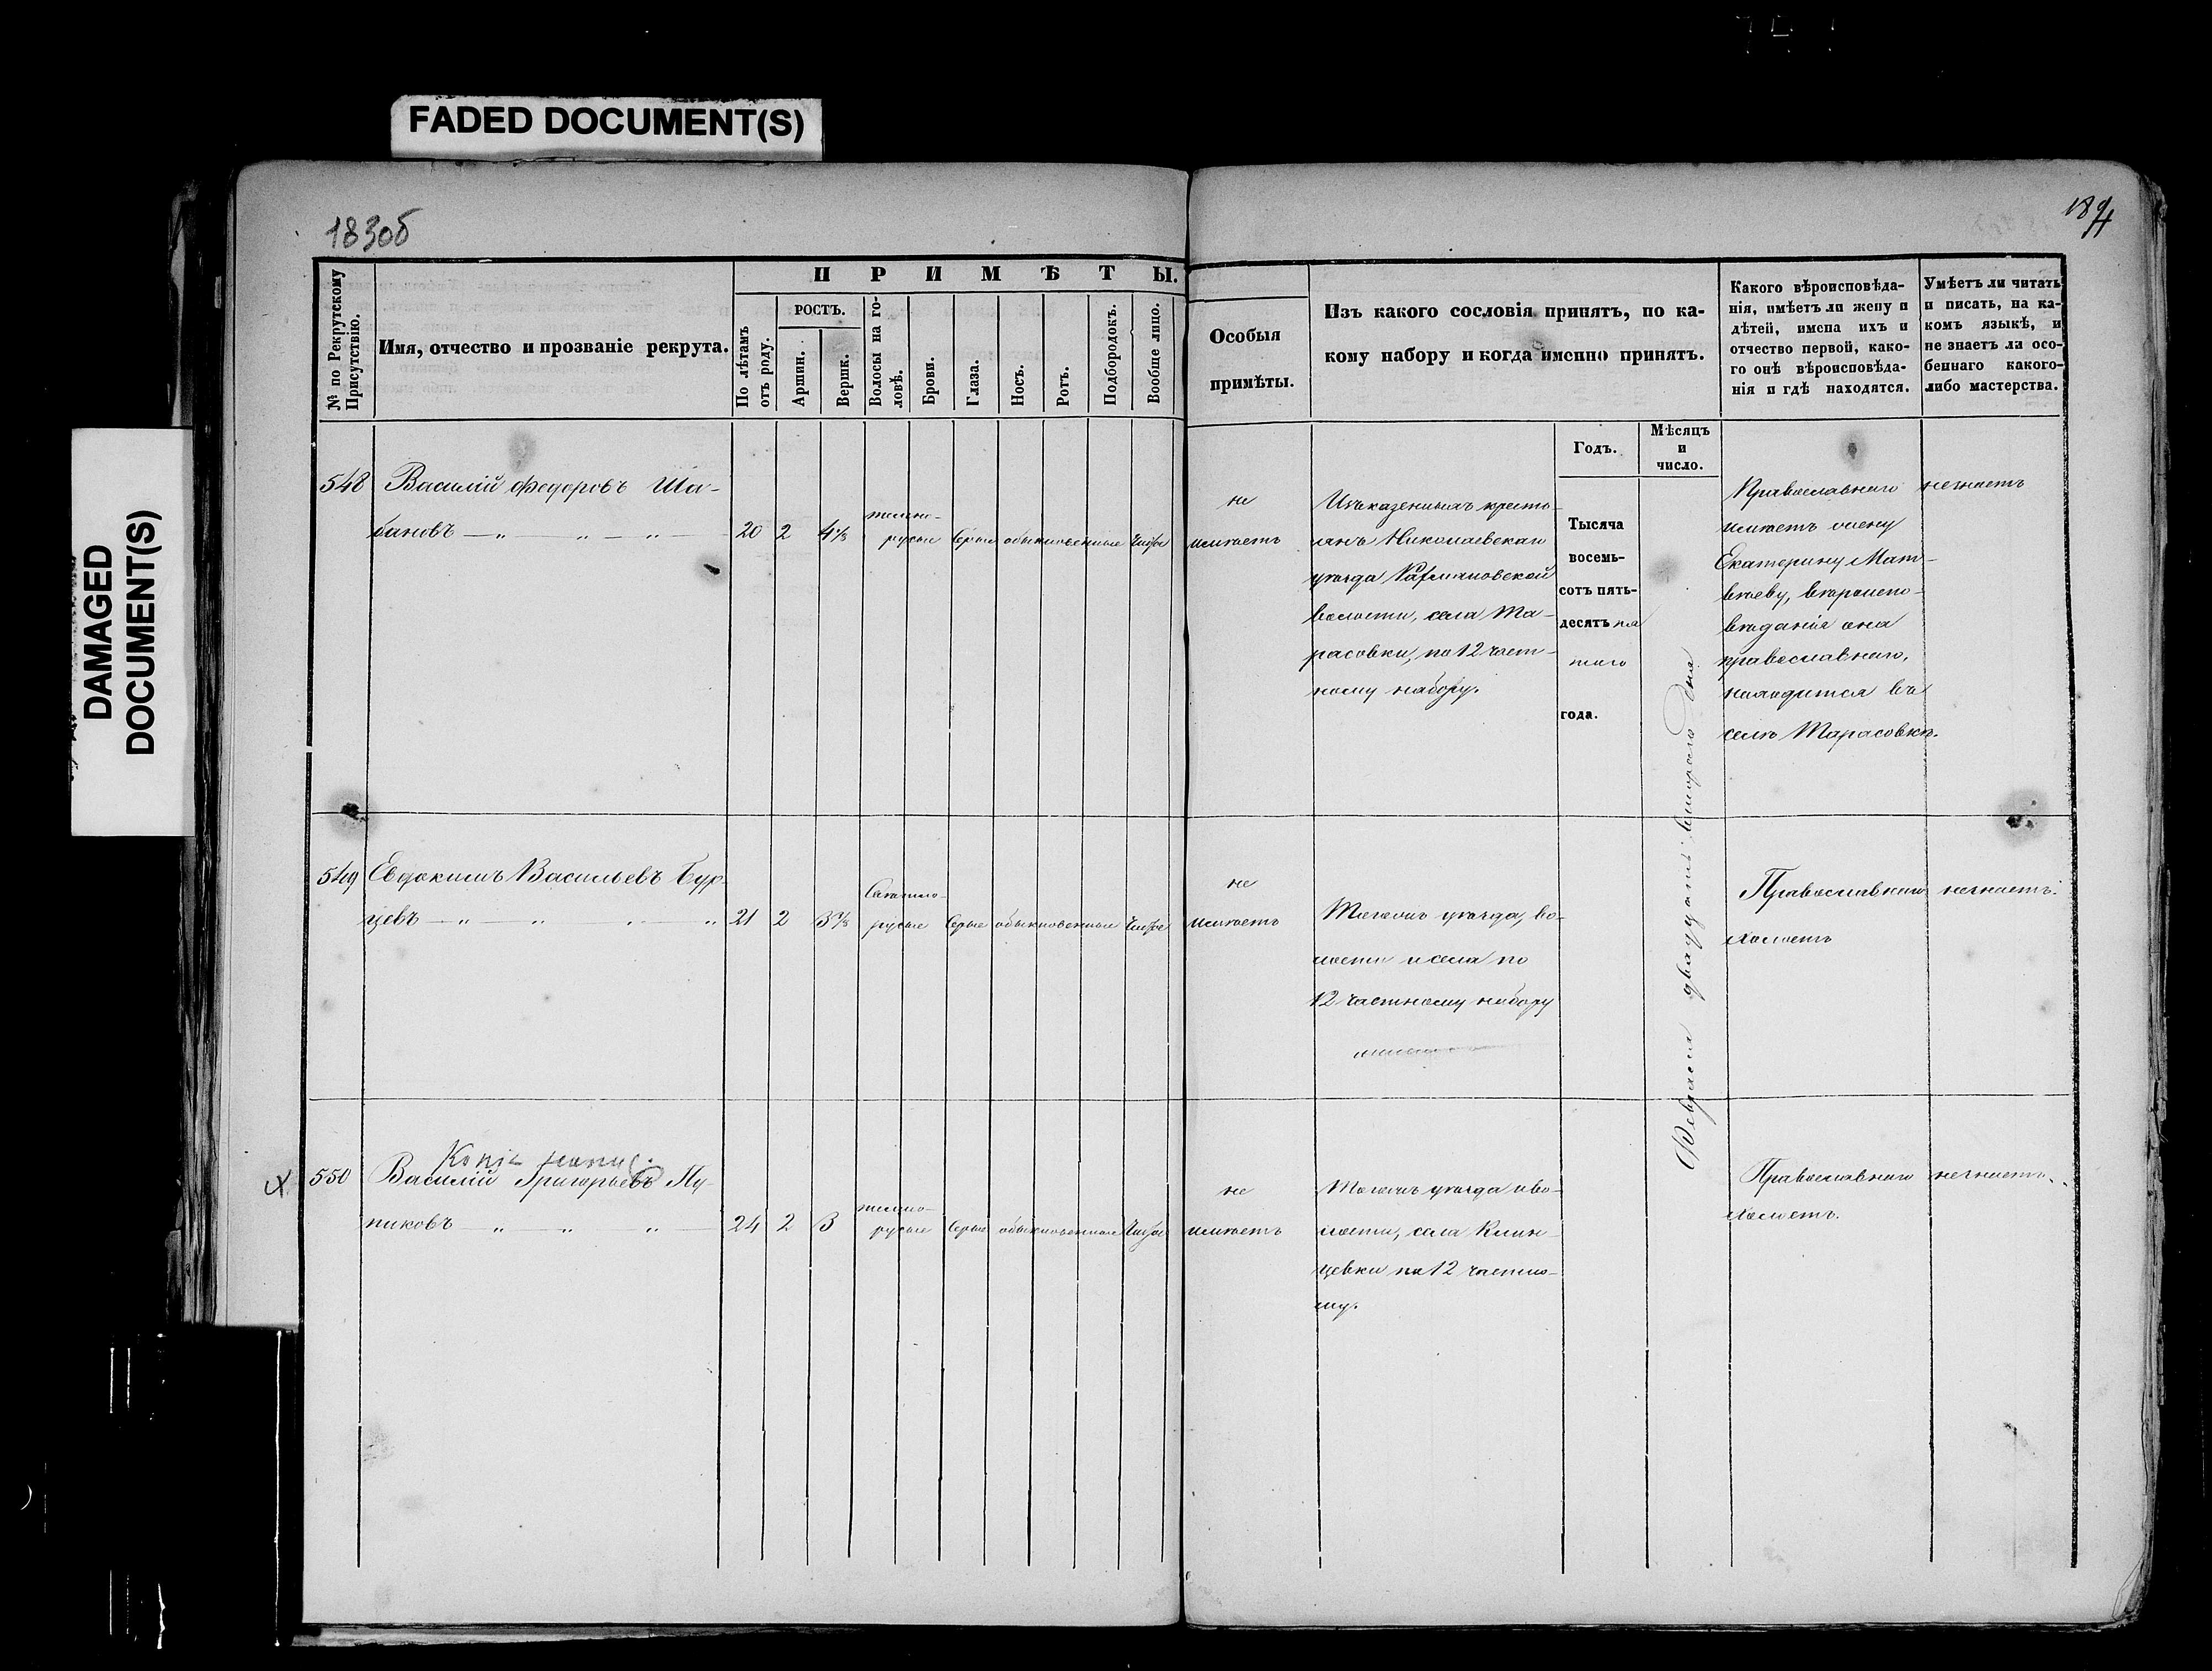 FADED DOCUMENT(S)
DAMAGED
DOCUMENT(S)
183об
184
№ по Рекрутскому
Присутствію.
Имя, отчество и прозваніе рекрута.
ПРИМѢТЫ.
По лѣтамъ
отъ роду.
РОСТЪ.
Аршин.
Вершк.
Волосы на го-
ловѣ.
Брови.
Глаза.
Носъ.
Ротъ.
Подбородокъ.
Вообще лицо.
Особыя
примѣты.
Изъ какого сословія принятъ, по ка-
кому набору и когда именно принятъ.
Годъ.
Мѣсяцъ
и
число.
Какого вѣроисповѣда-
нія, имѣетъ ли жену и
дѣтей, имена ихъ и
отчество первой, како-
го онѣ вѣроисповѣда-
нія и гдѣ находятся.
Умѣетъ ли читать
и писать, на ка-
комъ языкѣ, и
не знаетъ ли осо-
беннаго какого-
либо мастерства.
548
Василій Федоровъ Ша-
бановъ — „ — „ — „ —
20 2 4⅛
темно-
русые
серые обыкновенные чистое
не
имѣетъ
Изъ казенныхъ кресть-
янъ Николаевскаго
уѣзда
волости, села Та-
расовки, по 12 част-
ному набору.
Тысяча
восемь-
сотъ пять-
десятъ пя
таго
года.
Февраля двадцать втораго дня
Православнаго
имѣетъ жену
Екатерину Мат-
вѣеву, вѣроиспо-
вѣданія она
православнаго,
находится въ
селѣ Тарасовкѣ.
незнаетъ
549
Евдокимъ Васильевъ Бур-
цевъ — „ — „ „ „
21 2 3⅛
Светло-
русые
серые обыкновенные чистое
не
имѣетъ
Тогожъ уѣзда, во-
лости и села по
12 частному набору
Православнаго
холостъ
незнаетъ.
550
Копія
Василій Григорьевъ Пу-
пиковъ — „ — „ — „ —
24 2 3
темно-
русые
серые обыкновенные чистое
не
имѣетъ
Тогожъ уѣзда и во-
лости, села Клин-
цевки по 12 частно-
му.
Православнаго
холостъ.
незнаетъ.